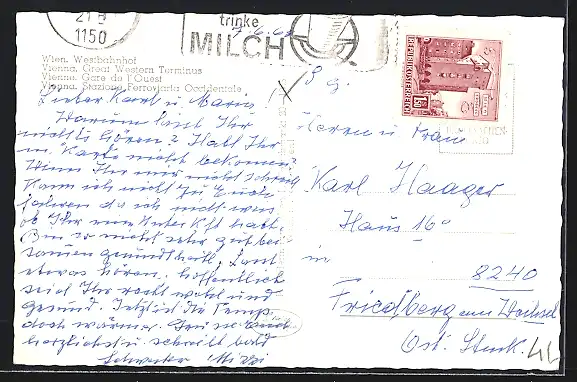 21.9
1150
trinke
MILCH
REPUBLIK ÖSTERREICH
Wien. Westbahnhof
Vienna. Great Western Terminus
Vienne. Gare de l'Ouest
Vienna. Stazione Ferroviaria Occidentale
S. g.
Lieber Karl u. Maria!
Warum läßt Ihr
nichts hören? Habt Ihr
m. Karte nicht bekommen?
Wenn Ihr mir nicht schreibt
kann ich nicht zu Euch
fahren da ich nicht weis
ob Ihr eine Unterkft habt.
Bin so nicht sehr gut bei
sammen gesundheitl. Laßt
etwas hören. hoffentlich
seid Ihr recht wohl und
gesund. Jetzt ist die Temp.
doch wärmer.
herzlichst u. schreibt bald
Schwester Mizzi
Herrn u. Frau
Karl Haager
Haus 16
in
8240
Friedberg am Wechsel
Ost. Stmk.